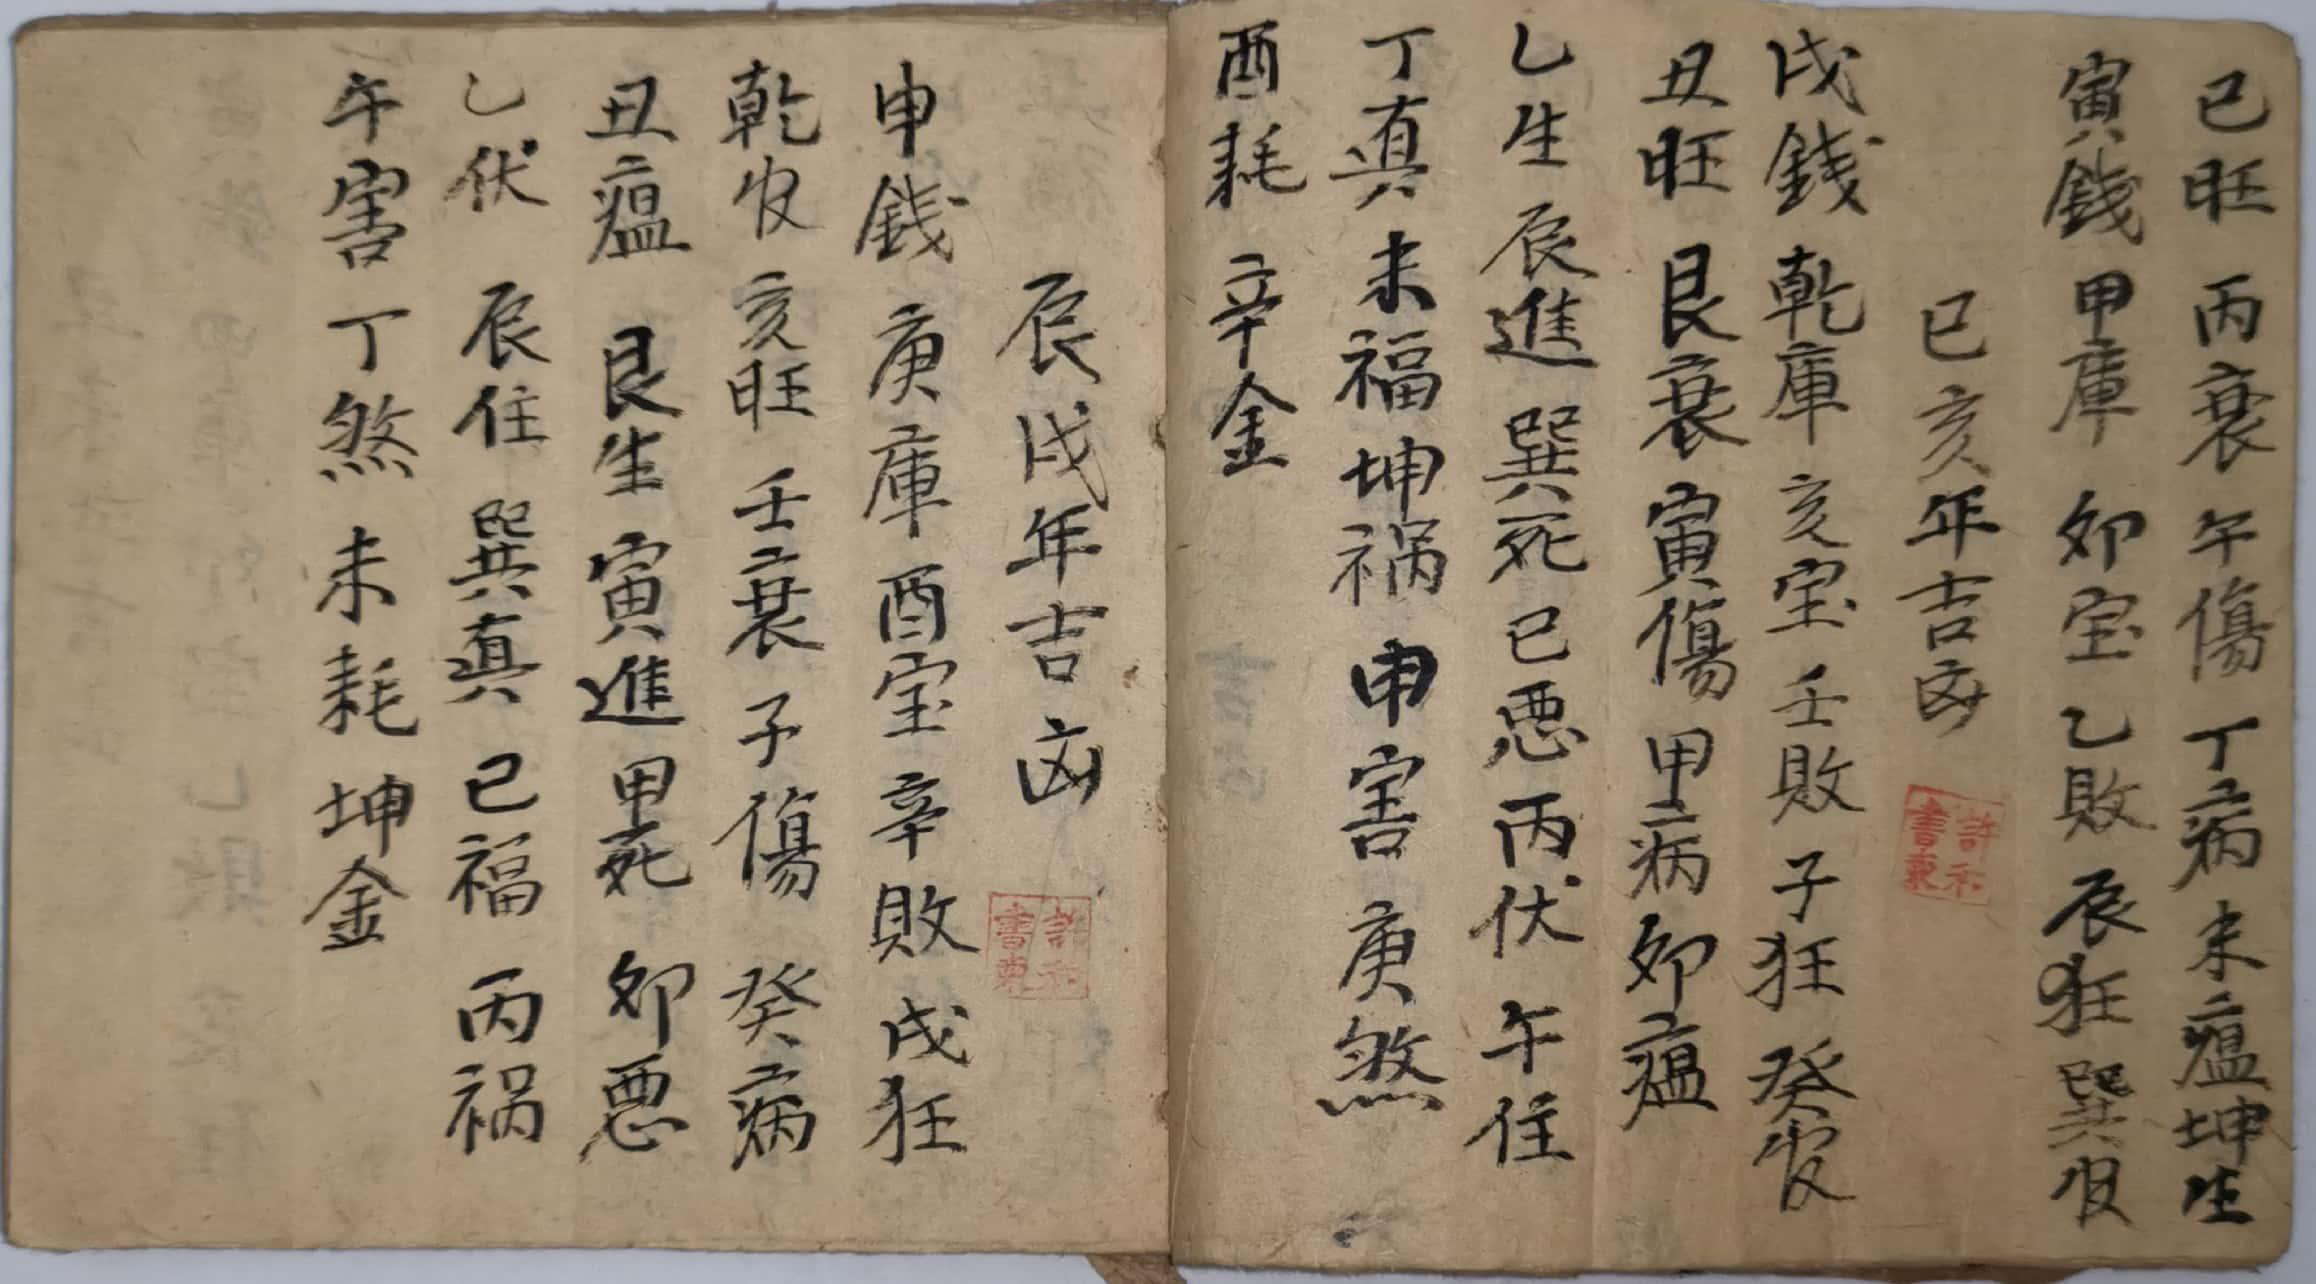 巳旺丙衰午傷丁病未瘟坤生
寅錢甲庫夘宝乙敗辰狂巽
巳亥年吉凶
許和書東
戌錢乾庫亥宝壬敗子狂癸
丑旺艮衰寅傷甲病夘瘟
乙生辰進巽死巳悪丙伏午住
丁真未福坤祸申害庚煞
酉耗辛金
辰戌年吉凶
許和書東
申錢庚庫酉宝辛敗戌狂
乾亥旺壬衰子傷癸病
丑瘟艮生寅進甲死夘悪
乙伏辰住巽真巳福丙祸
午害丁煞未耗坤金